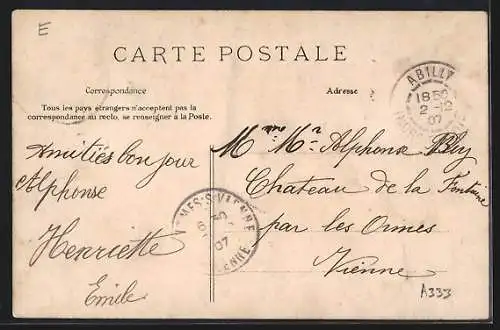 E
CARTE POSTALE
Correspondance
Tous les pays étrangers n'acceptent pas la
correspondance au recto, se renseigner à la Poste.
Amitiés bonjour
Alphonse
Henriette
Emile
Adresse
ABILLY
18 50
2 - 12
07
INDRE
Mme Mr Alphonse
Chateau de la Fontaine
par les Ormes
Vienne
VIENNE
07
A333